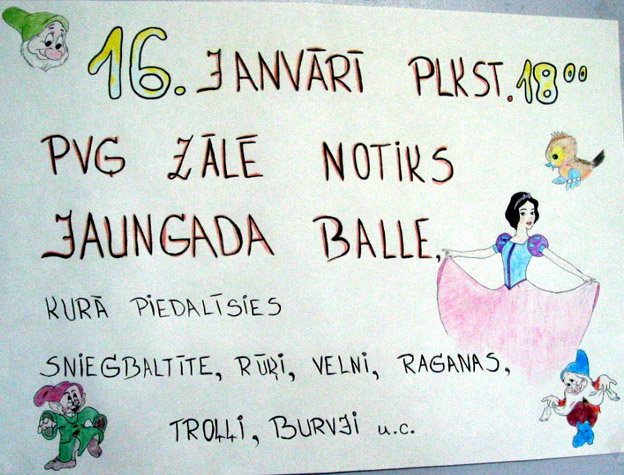 16. JANVĀRĪ PLKST. 18⁰⁰
PVG ZĀLĒ NOTIKS
JAUNGADA BALLE,
KURĀ PIEDALĪSIES
SNIEGBALTĪTE, RŪĶI, VELNI, RAGANAS,
TROĻĻI, BURVJI u.c.